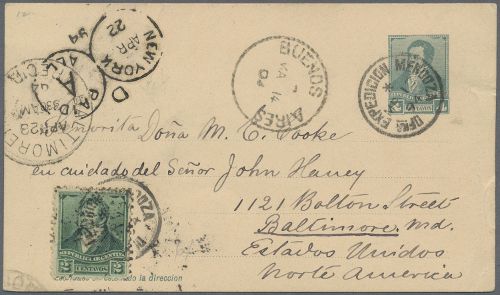 NEW YORK
APR
22
94
PAID
ALL
D
BUENOS
AIRES
14
EXPEDICION MENDOZA
CENTAVOS
APR 28
830AM
Señorita Doña M. C. Cooke
en cuidado del Señor John Haney
1121 Bolton Street
Baltimore, Md.
Estados Unidos
Norte America
REPUBLICA ARGENTINA
2 CENTAVOS 2
la direccion